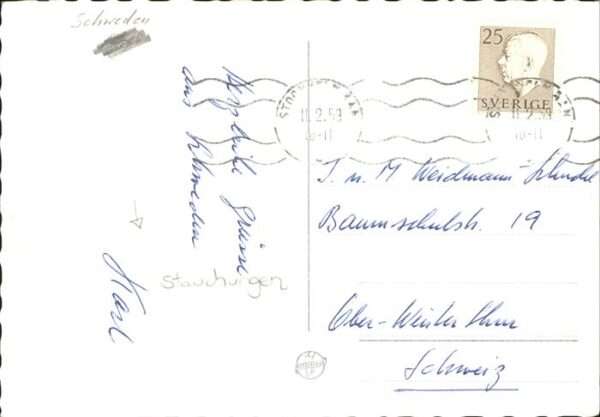 Schweden
25
SVERIGE
11.2.59
Herzliche Grüsse
aus Schweden
Karl
Stauchungen
J. u M Weidmann-
Baumschulstr. 19
Ober-Winterthur
Schweiz